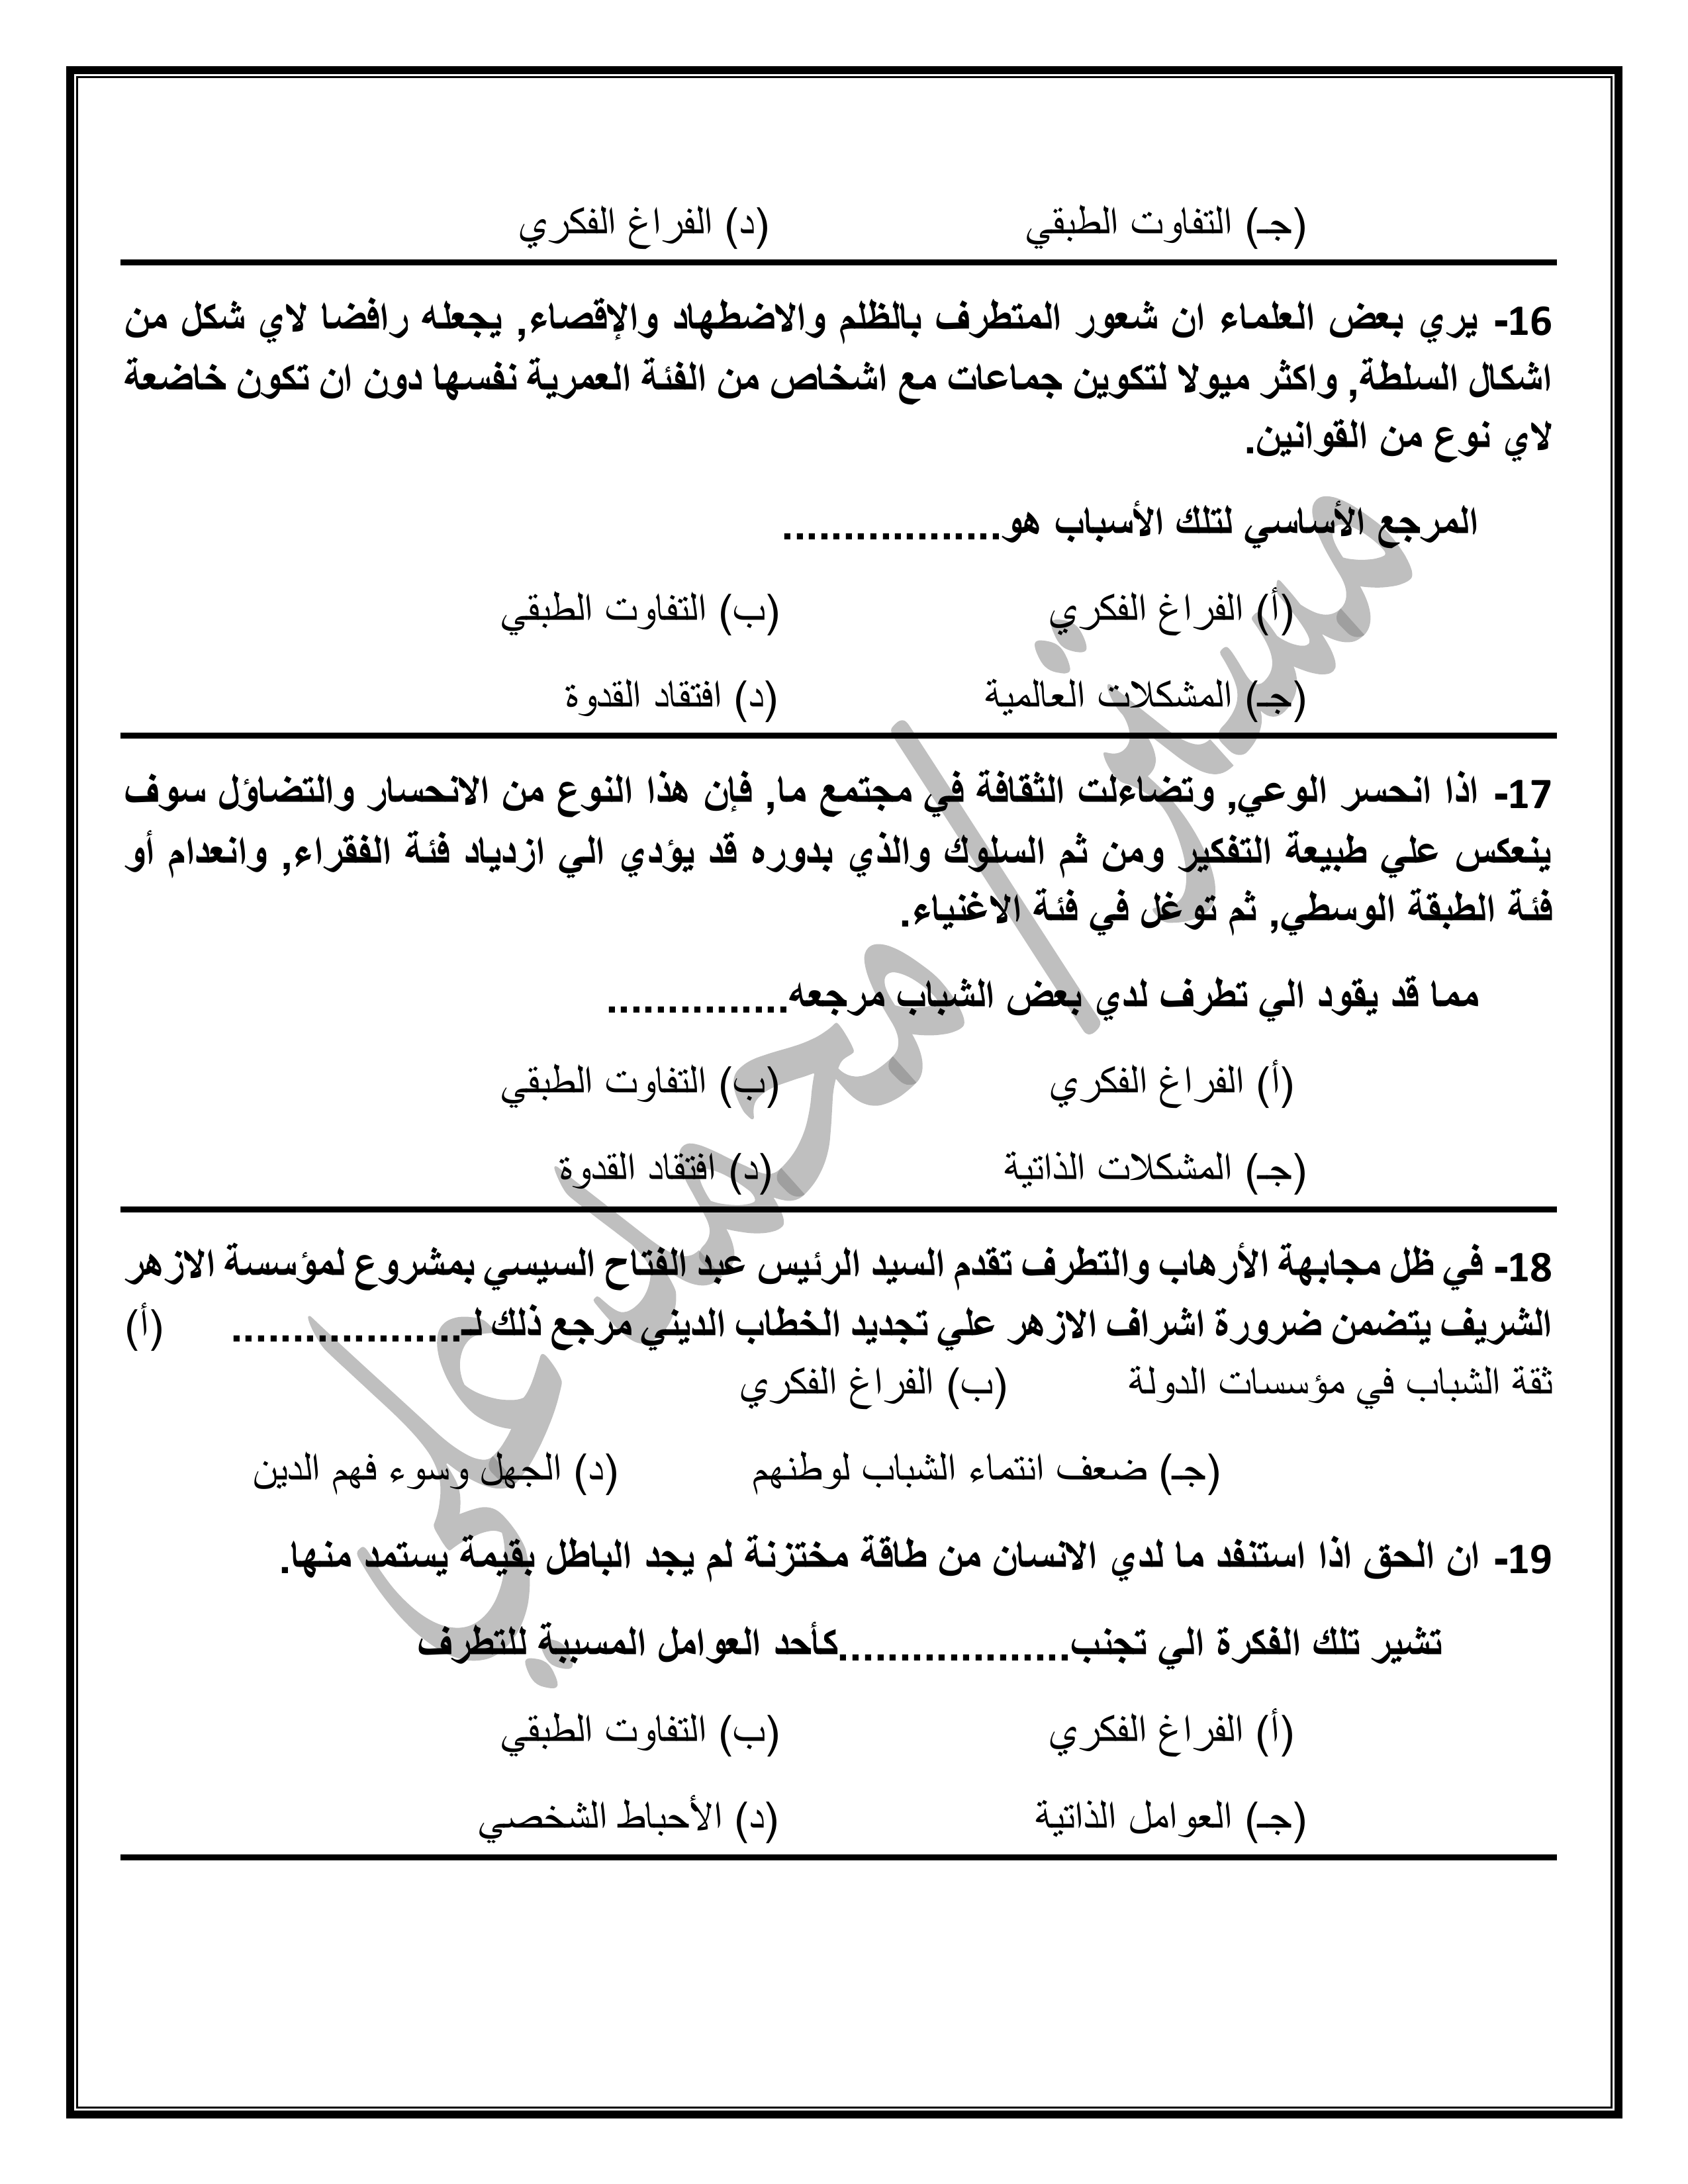 (جـ) التفاوت الطبقي (د) الفراغ الفكري
16- يري بعض العلماء ان شعور المتطرف بالظلم والاضطهاد والإقصاء, يجعله رافضا لاي شكل من
اشكال السلطة, واكثر ميولا لتكوين جماعات مع اشخاص من الفئة العمرية نفسها دون ان تكون خاضعة
لاي نوع من القوانين.
المرجع الأساسي لتلك الأسباب هو..................
(أ) الفراغ الفكري (ب) التفاوت الطبقي
(جـ) المشكلات العالمية (د) افتقاد القدوة
17- اذا انحسر الوعي, وتضاءلت الثقافة في مجتمع ما, فإن هذا النوع من الانحسار والتضاؤل سوف
ينعكس علي طبيعة التفكير ومن ثم السلوك والذي بدوره قد يؤدي الي ازدياد فئة الفقراء, وانعدام أو
فئة الطبقة الوسطي, ثم توغل في فئة الاغنياء.
مما قد يقود الي تطرف لدي بعض الشباب مرجعه...............
(أ) الفراغ الفكري (ب) التفاوت الطبقي
(جـ) المشكلات الذاتية (د) افتقاد القدوة
18- في ظل مجابهة الأرهاب والتطرف تقدم السيد الرئيس عبد الفتاح السيسي بمشروع لمؤسسة الازهر
الشريف يتضمن ضرورة اشراف الازهر علي تجديد الخطاب الديني مرجع ذلك لـ................... (أ)
ثقة الشباب في مؤسسات الدولة (ب) الفراغ الفكري
(جـ) ضعف انتماء الشباب لوطنهم (د) الجهل وسوء فهم الدين
19- ان الحق اذا استنفد ما لدي الانسان من طاقة مختزنة لم يجد الباطل بقيمة يستمد منها.
تشير تلك الفكرة الي تجنب...................كأحد العوامل المسببة للتطرف
(أ) الفراغ الفكري (ب) التفاوت الطبقي
(جـ) العوامل الذاتية (د) الأحباط الشخصي
مستر/ محمد علي